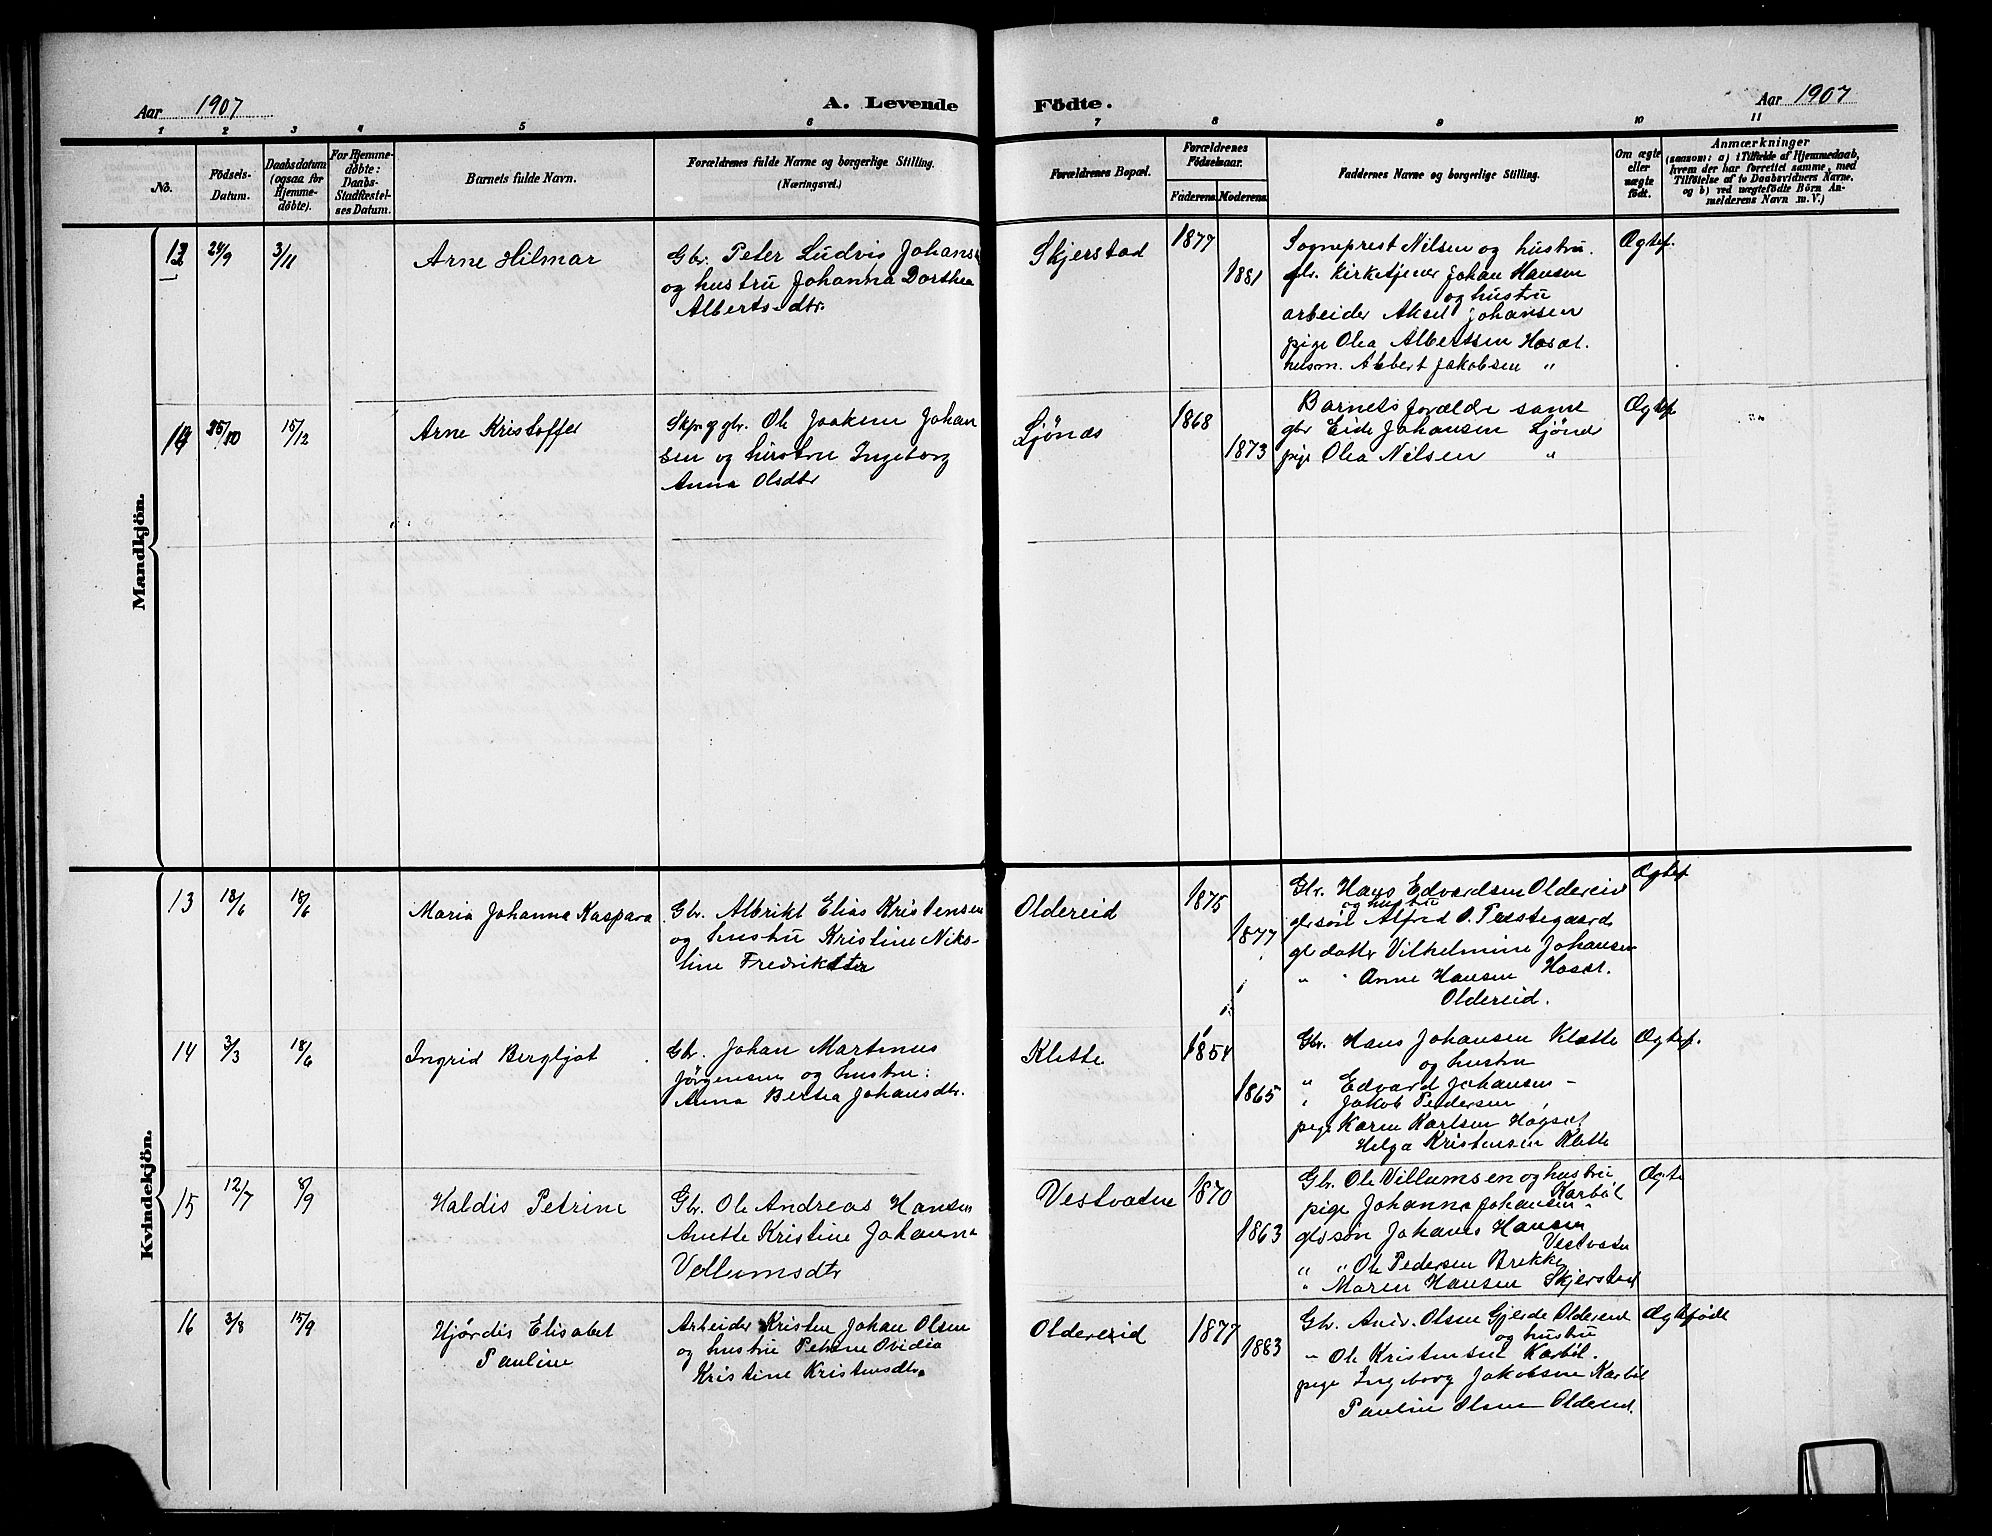 Aar 1907
A. Levende
Födte.
Aar 1907
1 2 3 4 5 6 7 8 9 10 11
No.
Födsels-
Datum.
Daabsdatum
(ogsaa for
Hjemme-
döbte).
For Hjemme-
döbte:
Daabs-
Stadfæstel-
ses Datum.
Barnets fulde Navn.
Forældrenes fulde Navne og borgerlige Stilling.
(Næringsvei.)
Forældrenes Bopæl.
Forældrenes
Födselsaar.
Faderens. Moderens.
Faddernes Navne og borgerlige Stilling.
Om ægte
eller
uægte
födt.
Anmærkninger
(saasom: a) i Tilfælde af Hjemmedaab,
hvem der har forrettet samme, med
Tilföielse af to Daabsvidners Navne.
og b) ved uægtefödte Börn An-
melderens Navn m. V.)
Mandkjön.
24/9
3/11
Arne Hilmar
Gbr. Peter Ludvig Johans
og hustru Johanna Dorthea
Albertsdtr.
Skjerstad
1877
1881
Sogneprest Nilsen og hustru.
gbr. kirketjener Johan Hansen
og hustru
arbeider Aksel Johansen
pige Olea Albertsen Hosæt.
husm. Albert Jakobsen "
Ægtef.
15/12
Arne Kristoffer
gbr. Ole Joakim Johan
sen og hustru Ingeborg
Anna Olsdtr
Ljönæs
1868
1873
Barnets forældre samt
gbr Eide Johansen Ljönes
pige Olea Nilsen "
Ægtef
Kvindekjön.
13
18/6
18/6
Maria Johanna Kaspara
Gbr. Albrikt Elias Kristensen
og hustru Kristine Nik-
line Fredriksdtr
Oldereid
1875
1877
Gbr. Hans Edvardsen Oldereid
og hustru
gbrsön Alfred O. Prestegaard
gbrdatter Vilhelmine Johansen
" " Anne Hansen Hosæt.
Oldereid.
Ægtef
14
3/3
18/6
Ingrid Bergljot
Gbr. Johan Martinus
Jörgensen og hustru:
Anna Berta Johansdtr.
Klette
1854
1865
Gbr. Hans Johansen Klætte
og hustru
" Edvard Johansen -
" Jakob Pedersen "
pige Karen Karlsen Högset
Helga Kristensen Klette
Ægtef.
15
12/7
8/9
Haldis Petrine
Gbr. Ole Andreas Hansen
Anette Kristine Johanna
Vellumsdtr
Vestvatne
1870
1863
Gbr. Ole Villumsen og hustru
Karböl
pige Johanna Johansen "
gbrsön Johanes Hansen
Vestvatn
" " Ole Pedersen Brekke
" Maren Hansen Skjerstad
Ægte
16
3/8
15/9
Hjördis Elisabet
Pauline
Arbeider Kristen Johan Olsen
og hustru Petrine Ovidia
Kristine Kristensdtr.
Oldereid
1877
1883
Gbr. Andr. Olsen Gjerde Oldereid
og hustru
" Ole Kristensen Karböl.
pige Ingeborg Jakobsen Karböl
Pauline Olsen Oldereid.
Ægtefödt